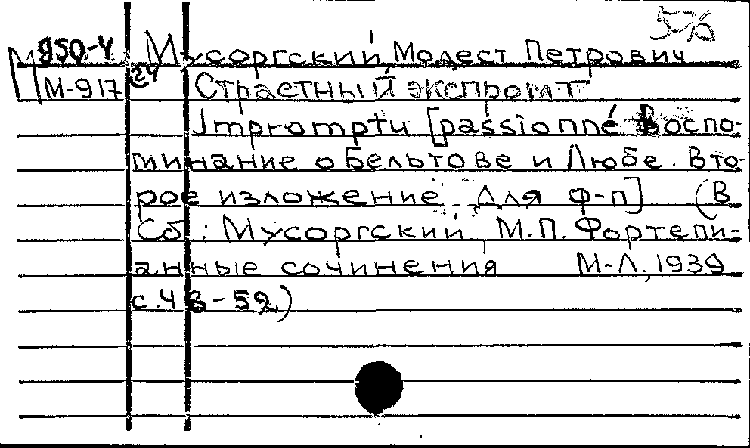 5-16
М 950-4 Мусоргский, Модест Петрович
П М-917 24 Страстный экспромт
Impromptu [passionné Воспо-
минание о Бельтове и Любе. Вто
рое изложение. Для ф-п] (В
Сб.: Мусоргский, М.П. Фортепи-
анные сочинения М-Л, 1939
с.48-52)